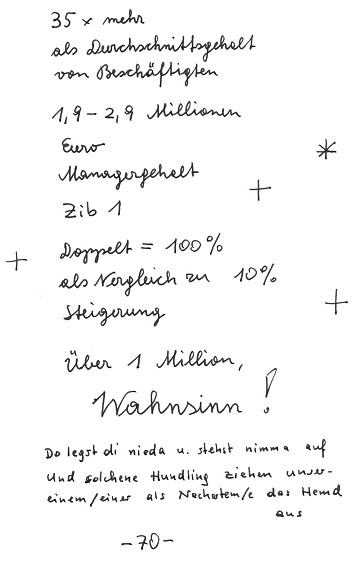 35 x mehr
als Durchschnittsgehalt
von Beschäftigten
1,9 – 2,9 Millionen
Euro
Managergehalt
Zib 1
Doppelt = 100%
als Vergleich zu 10%
Steigerung
Über 1 Million,
Wahnsinn!
Do legst di nieda u. stehst nimma auf
Und solchene Hundling ziehen unser-
einem/einer als Nachstem/e das Hemd
aus
-70-